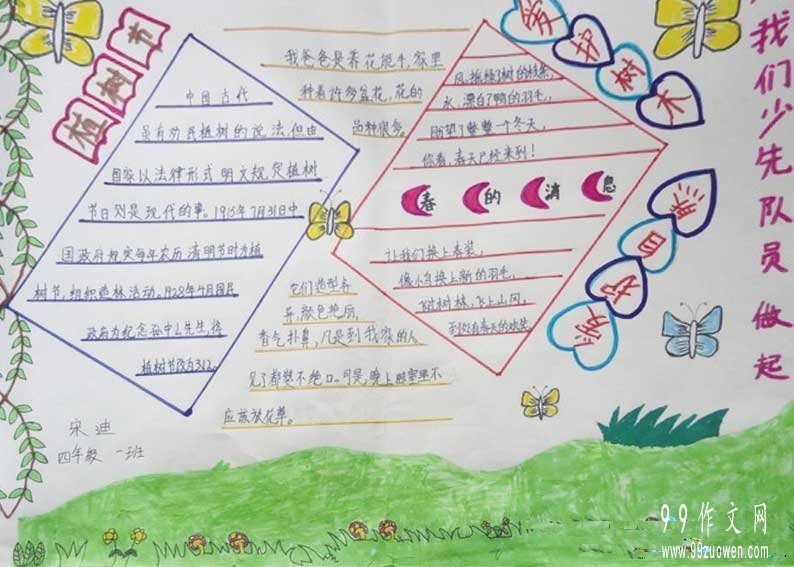 植树节
中国古代
虽有劝民植树的说法,但由
国家以法律形式明文规定植树
节日则是现代的事。1915年7月31日中
国政府规定每年农历清明节时为植
树节,组织造林活动,1928年4月国民
政府为纪念孙中山先生,将
植树节改为3.12.
宋迪
四年级 一班
我爸爸是养花能手,家里
种着许多盆花,花的
品种很多。
它们造型各
异,颜色艳丽,
香气扑鼻,凡是到我家的人
见了都赞不绝口。可是,晚上卧室里不
应该放花草。
风,摇绿了树的枝条,
水,漂白了鸭的羽毛,
盼望了整整一个冬天,
你看,春天已经来到!
春的消息
让我们换上春装,
像小鸟换上新的羽毛,
飞过树林,飞上山冈,
到处有春天的欢笑。
爱护树木
从我们少先队员做起
99作文网
www.99zuowen.com